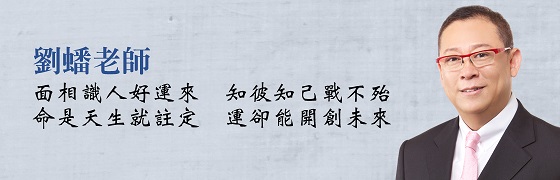 劉蟠老師
面相識人好運來 知彼知己戰不殆
命是天生就註定 運卻能開創未來